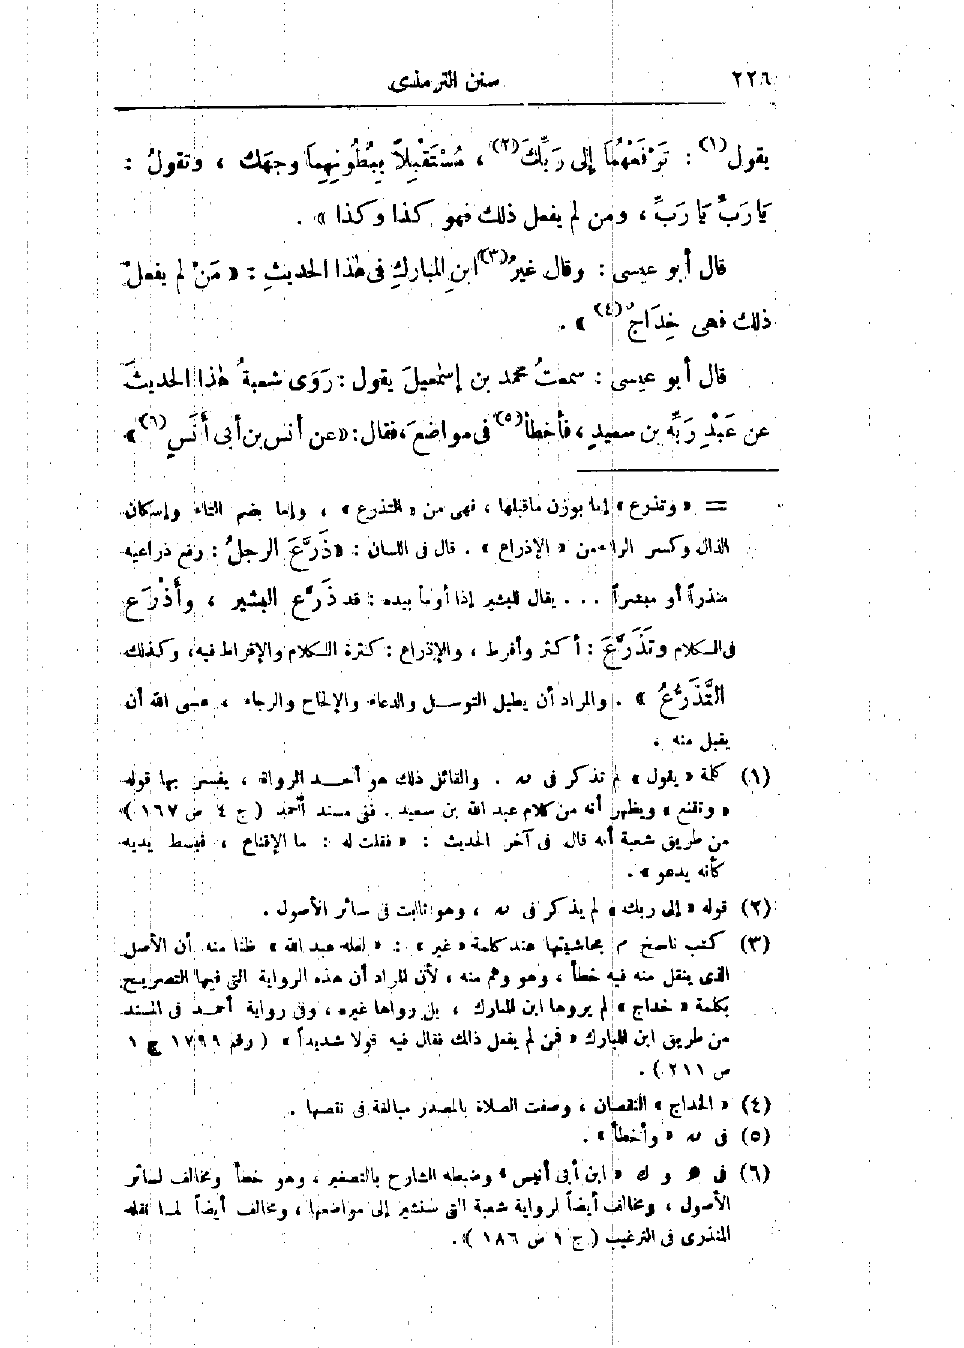 ٢٢٦ سنن الترمذى
يقول(١) : تَرْفَعُهُمَا إلى رَبِّكَ(٢) ، مُسْتَقْبِلاً بِبُطُونِهِمَا وجهَك ، وتقولُ :
يَا رَبِّ يَا رَبِّ ، ومن لم يفعل ذلك فهو كذا وكذا » .
قال أبو عيسى : وقال غيرُ(٣) ابنِ المباركِ فى هٰذا الحديثِ : « مَنْ لم يفعلْ
ذلك فهى خِدَاجٌ(٤) » .
قال أبو عيسى : سمعتُ محمد بن إسمٰعيلَ يقول : رَوَى شعبةُ هٰذا الحديثَ
عن عَبْدِ رَبِّهِ بن سعيدٍ ، فأخطأ(٥) فى مواضعَ ، فقال : « عن أنس بن أبى أَنَسٍ(٦) »
= « وتذرع » إما بوزن ماقبلها ، فهى من « التذرع » ، وإما بضم التاء وإسكان
الذال وكسر الراء من « الإذراع » . قال فى اللسان : « ذَرَّعَ الرجلُ : رفع ذراعيه
منذراً أو مبشراً ... يقال للبشير إذا أومأ بيده : قد ذَرَّع البشير ، وأَذْرَع
فى الكلام وتَذَرَّعَ : أكثر وأفرط ، والإذراع : كثرة الكلام والإفراط فيه ، وكذلك
التَّذَرُّعُ » . والمراد أن يطيل التوسل والدعاء والإلحاح والرجاء ، عسى الله أن
يقبل منه .
(١) كلمة « يقول » لم تذكر فى ںہ . والقائل ذلك هو أحد الرواة ، يفسر بها قوله
« وتقنع » ويظهر أنه من كلام عبد الله بن سعيد . ففى مسند أحمد ( ج ٤ ص ١٦٧ )
من طريق شعبة أنه قال فى آخر الحديث : « فقلت له : ما الإقناع ، فبسط يديه
كأنه يدعو » .
(٢) قوله « إلى ربك » لم يذكر فى ںہ ، وهو ثابت فى سائر الأصول .
(٣) كتب ناسخ م بحاشيتها عند كلمة « غير » : « لعله عبد الله » ظنا منه أن الأصل
الذى ينقل منه فيه خطأ ، وهو وهم منه ، لأن المراد أن هذه الرواية التى فيها التصريح
بكلمة « خداج » لم يروها ابن المبارك ، بل رواها غيره ، وفى رواية أحمد فى المسند
من طريق ابن المبارك « فمن لم يفعل ذلك فقال فيه قولا شديداً » ( رقم ١٧٩٩ ج ١
ص ٢١١ ) .
(٤) « الخداج » النقصان ، وصفت الصلاة بالمصدر مبالغة فى نقصها .
(٥) فى ںہ « وأخطأ » .
(٦) فى ه و ك « ابن أبى أنيس » وضبطه الشارح بالتصغير ، وهو خطأ ومخالف لسائر
الأصول ، ومخالف أيضاً لرواية شعبة التى سنشير إلى مواضعها ، ومخالف أيضاً لما نقله
المنذرى فى الترغيب ( ج ١ ص ١٨٦ ) .